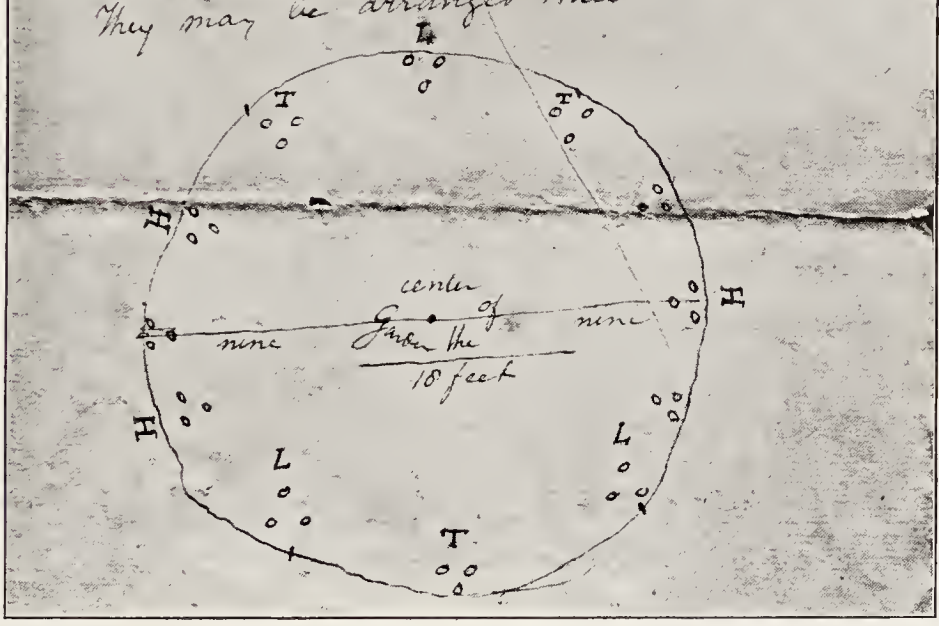 They may be arranged thus
L
T T
H
center
of
nine Garden the nine H
18 feet
H
L L
T